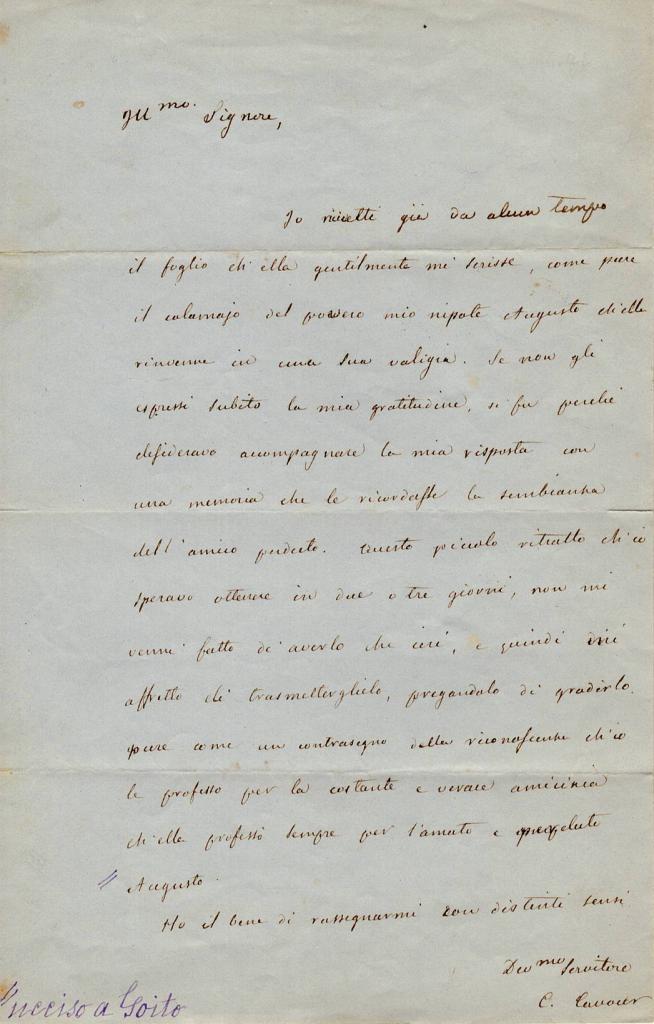 Ill.mo Signore,
Io ricevetti già da alcun tempo
il foglio ch'ella gentilmente mi scrisse, come pure
il calamajo del povero mio nipote Augusto ch'ella
rinvenne in una sua valigia. Se non gli
espressi subito la mia gratitudine, si fu perchè
desideravo accompagnare la mia risposta con
una memoria che le ricordasse la sembianza
dell'amico perduto. Questo piccolo ritratto ch'io
speravo ottenere in due o tre giorni, non mi
venne fatto di averlo che ieri, e quindi mi
affretto di trasmetterglielo, pregandolo di gradirlo
pure come un contrasegno della riconoscenza ch'io
le professo per la costante e verace amicizia
ch'ella professò sempre per l'amato e
" Augusto.
Ho il bene di rassegnarmi con distinti sensi
Dev.mo Servitore
C. Cavour
" ucciso a Goito